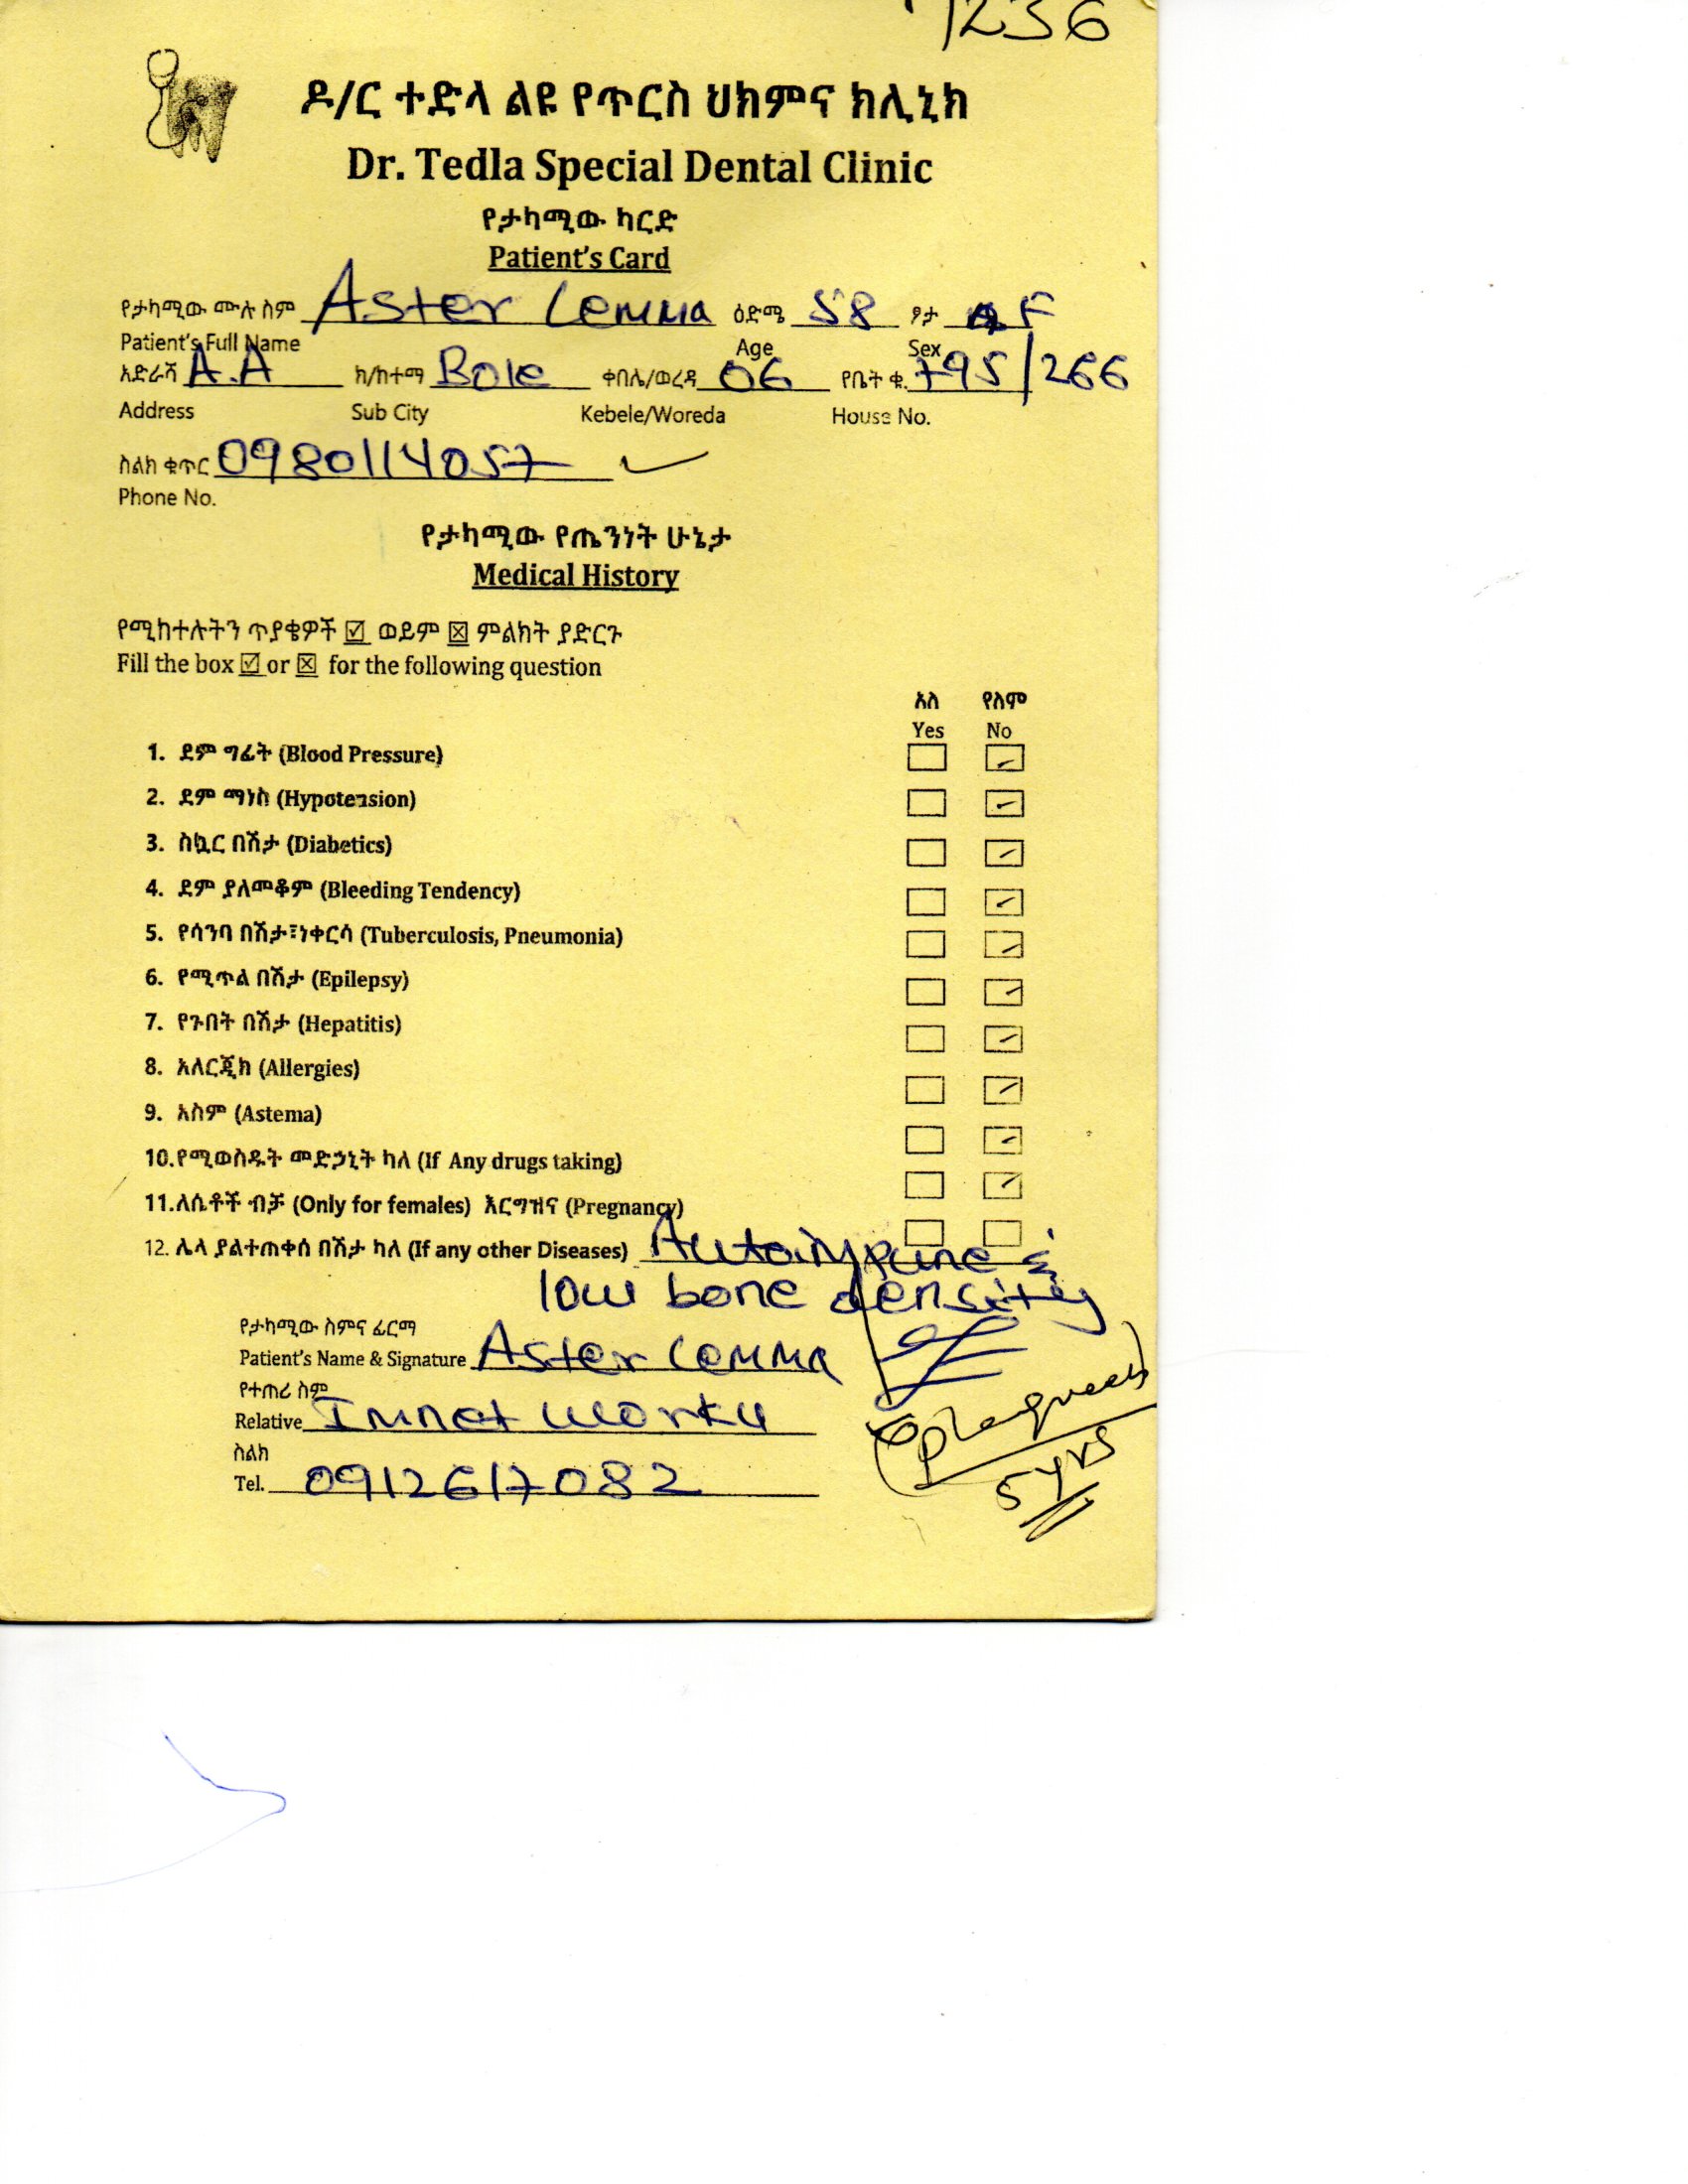 7236
ዶ/ር ተድላ ልዩ የጥርስ ህክምና ክሊኒክ
Dr. Tedla Special Dental Clinic
የታካሚው ካርድ
Patient's Card
የታካሚው ሙሉ ስም Aster Lemma ዕድሜ 58 ፆታ F
Patient's Full Name Age Sex
አድራሻ A.A ክ/ከተማ Bole ቀበሌ/ወረዳ 06 የቤት ቁ. 795/266
Address Sub City Kebele/Woreda House No.
ስልክ ቁጥር 0980114057
Phone No.
የታካሚው የጤንነት ሁኔታ
Medical History
የሚከተሉትን ጥያቄዎች ☑ ወይም ☒ ምልክት ያድርጉ
Fill the box ☑ or ☒ for the following question
አለ የለም
Yes No
1. ደም ግፊት (Blood Pressure)
2. ደም ማነስ (Hypotension)
3. ስኳር በሽታ (Diabetics)
4. ደም ያለመቆም (Bleeding Tendency)
5. የሳንባ በሽታ፣ነቀርሳ (Tuberculosis, Pneumonia)
6. የሚጥል በሽታ (Epilepsy)
7. የጉበት በሽታ (Hepatitis)
8. አለርጂክ (Allergies)
9. አስም (Astema)
10.የሚወስዱት መድኃኒት ካለ (If Any drugs taking)
11.ለሴቶች ብቻ (Only for females) እርግዝና (Pregnancy)
12. ሌላ ያልተጠቀሰ በሽታ ካለ (If any other Diseases) Autoimmune &
low bone density
የታካሚው ስምና ፊርማ
Patient's Name & Signature Aster Lemma
የተጠሪ ስም
Relative Imnet Worku
ስልክ
Tel. 0912617082
5 yrs